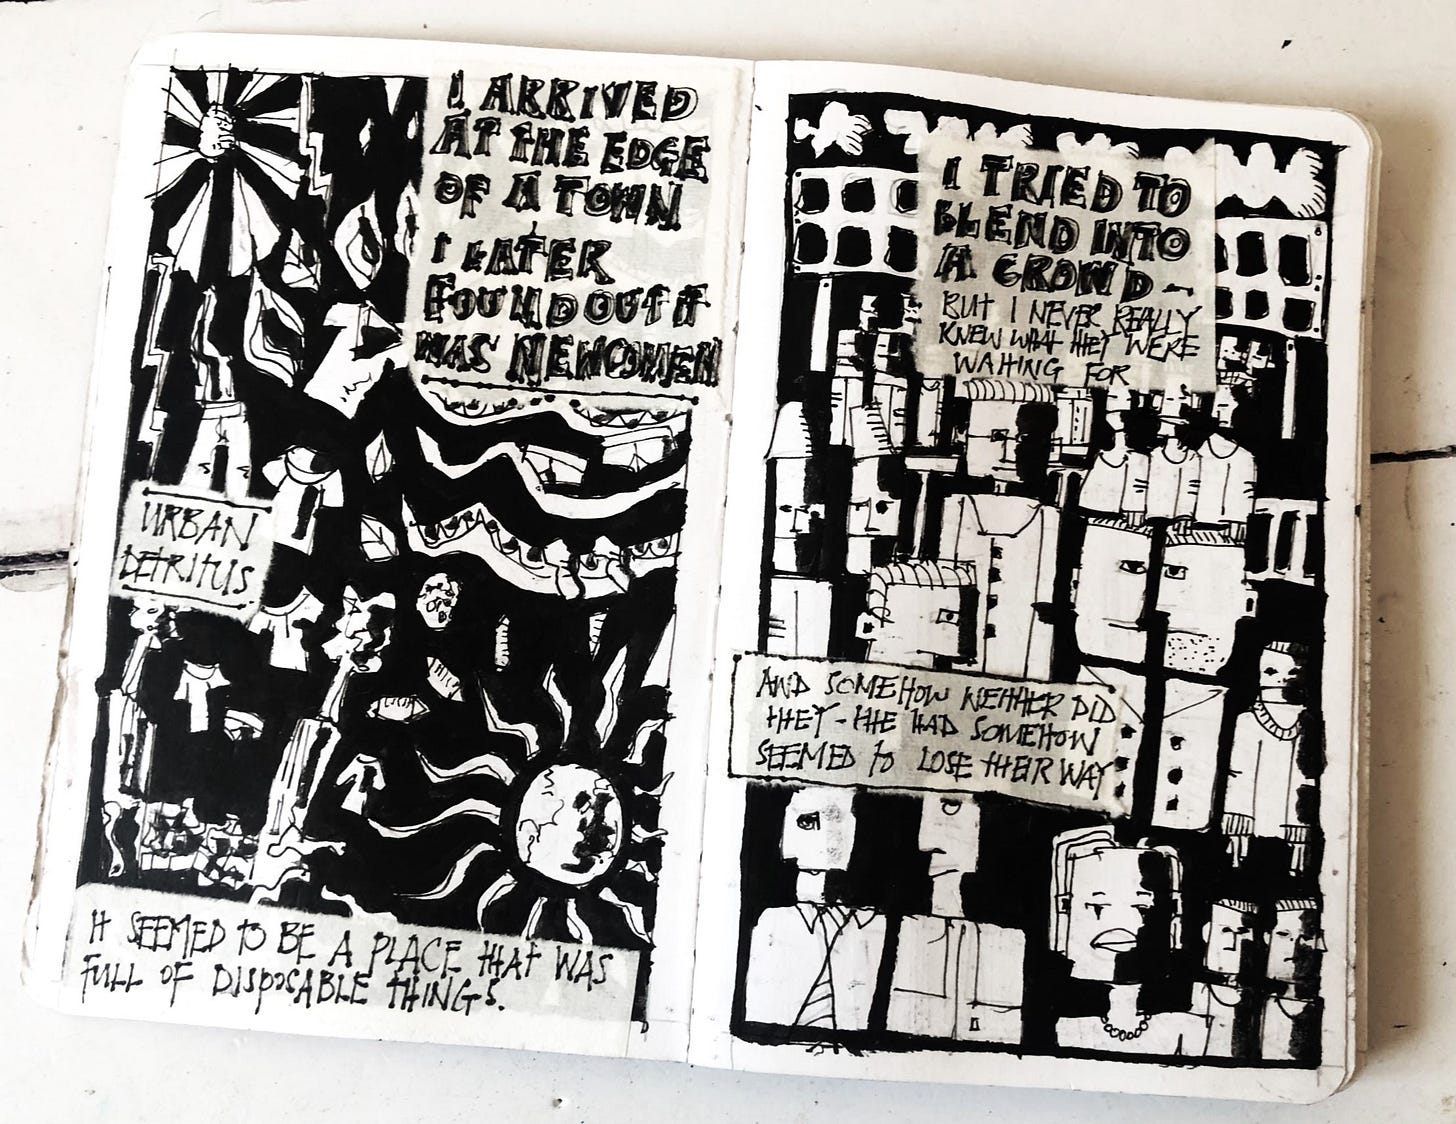 I ARRIVED
AT THE EDGE
OF A TOWN
I LATER
FOUND OUT IT
WAS NEWCOMEN
URBAN
DETRITUS
IT SEEMED TO BE A PLACE THAT WAS
FULL OF DISPOSABLE THINGS.
I TRIED TO
BLEND INTO
A CROWD –
BUT I NEVER REALLY
KNEW WHAT THEY WERE
WAITING FOR
AND SOMEHOW NEITHER DID
THEY – HE HAD SOMEHOW
SEEMED TO LOSE THEIR WAY